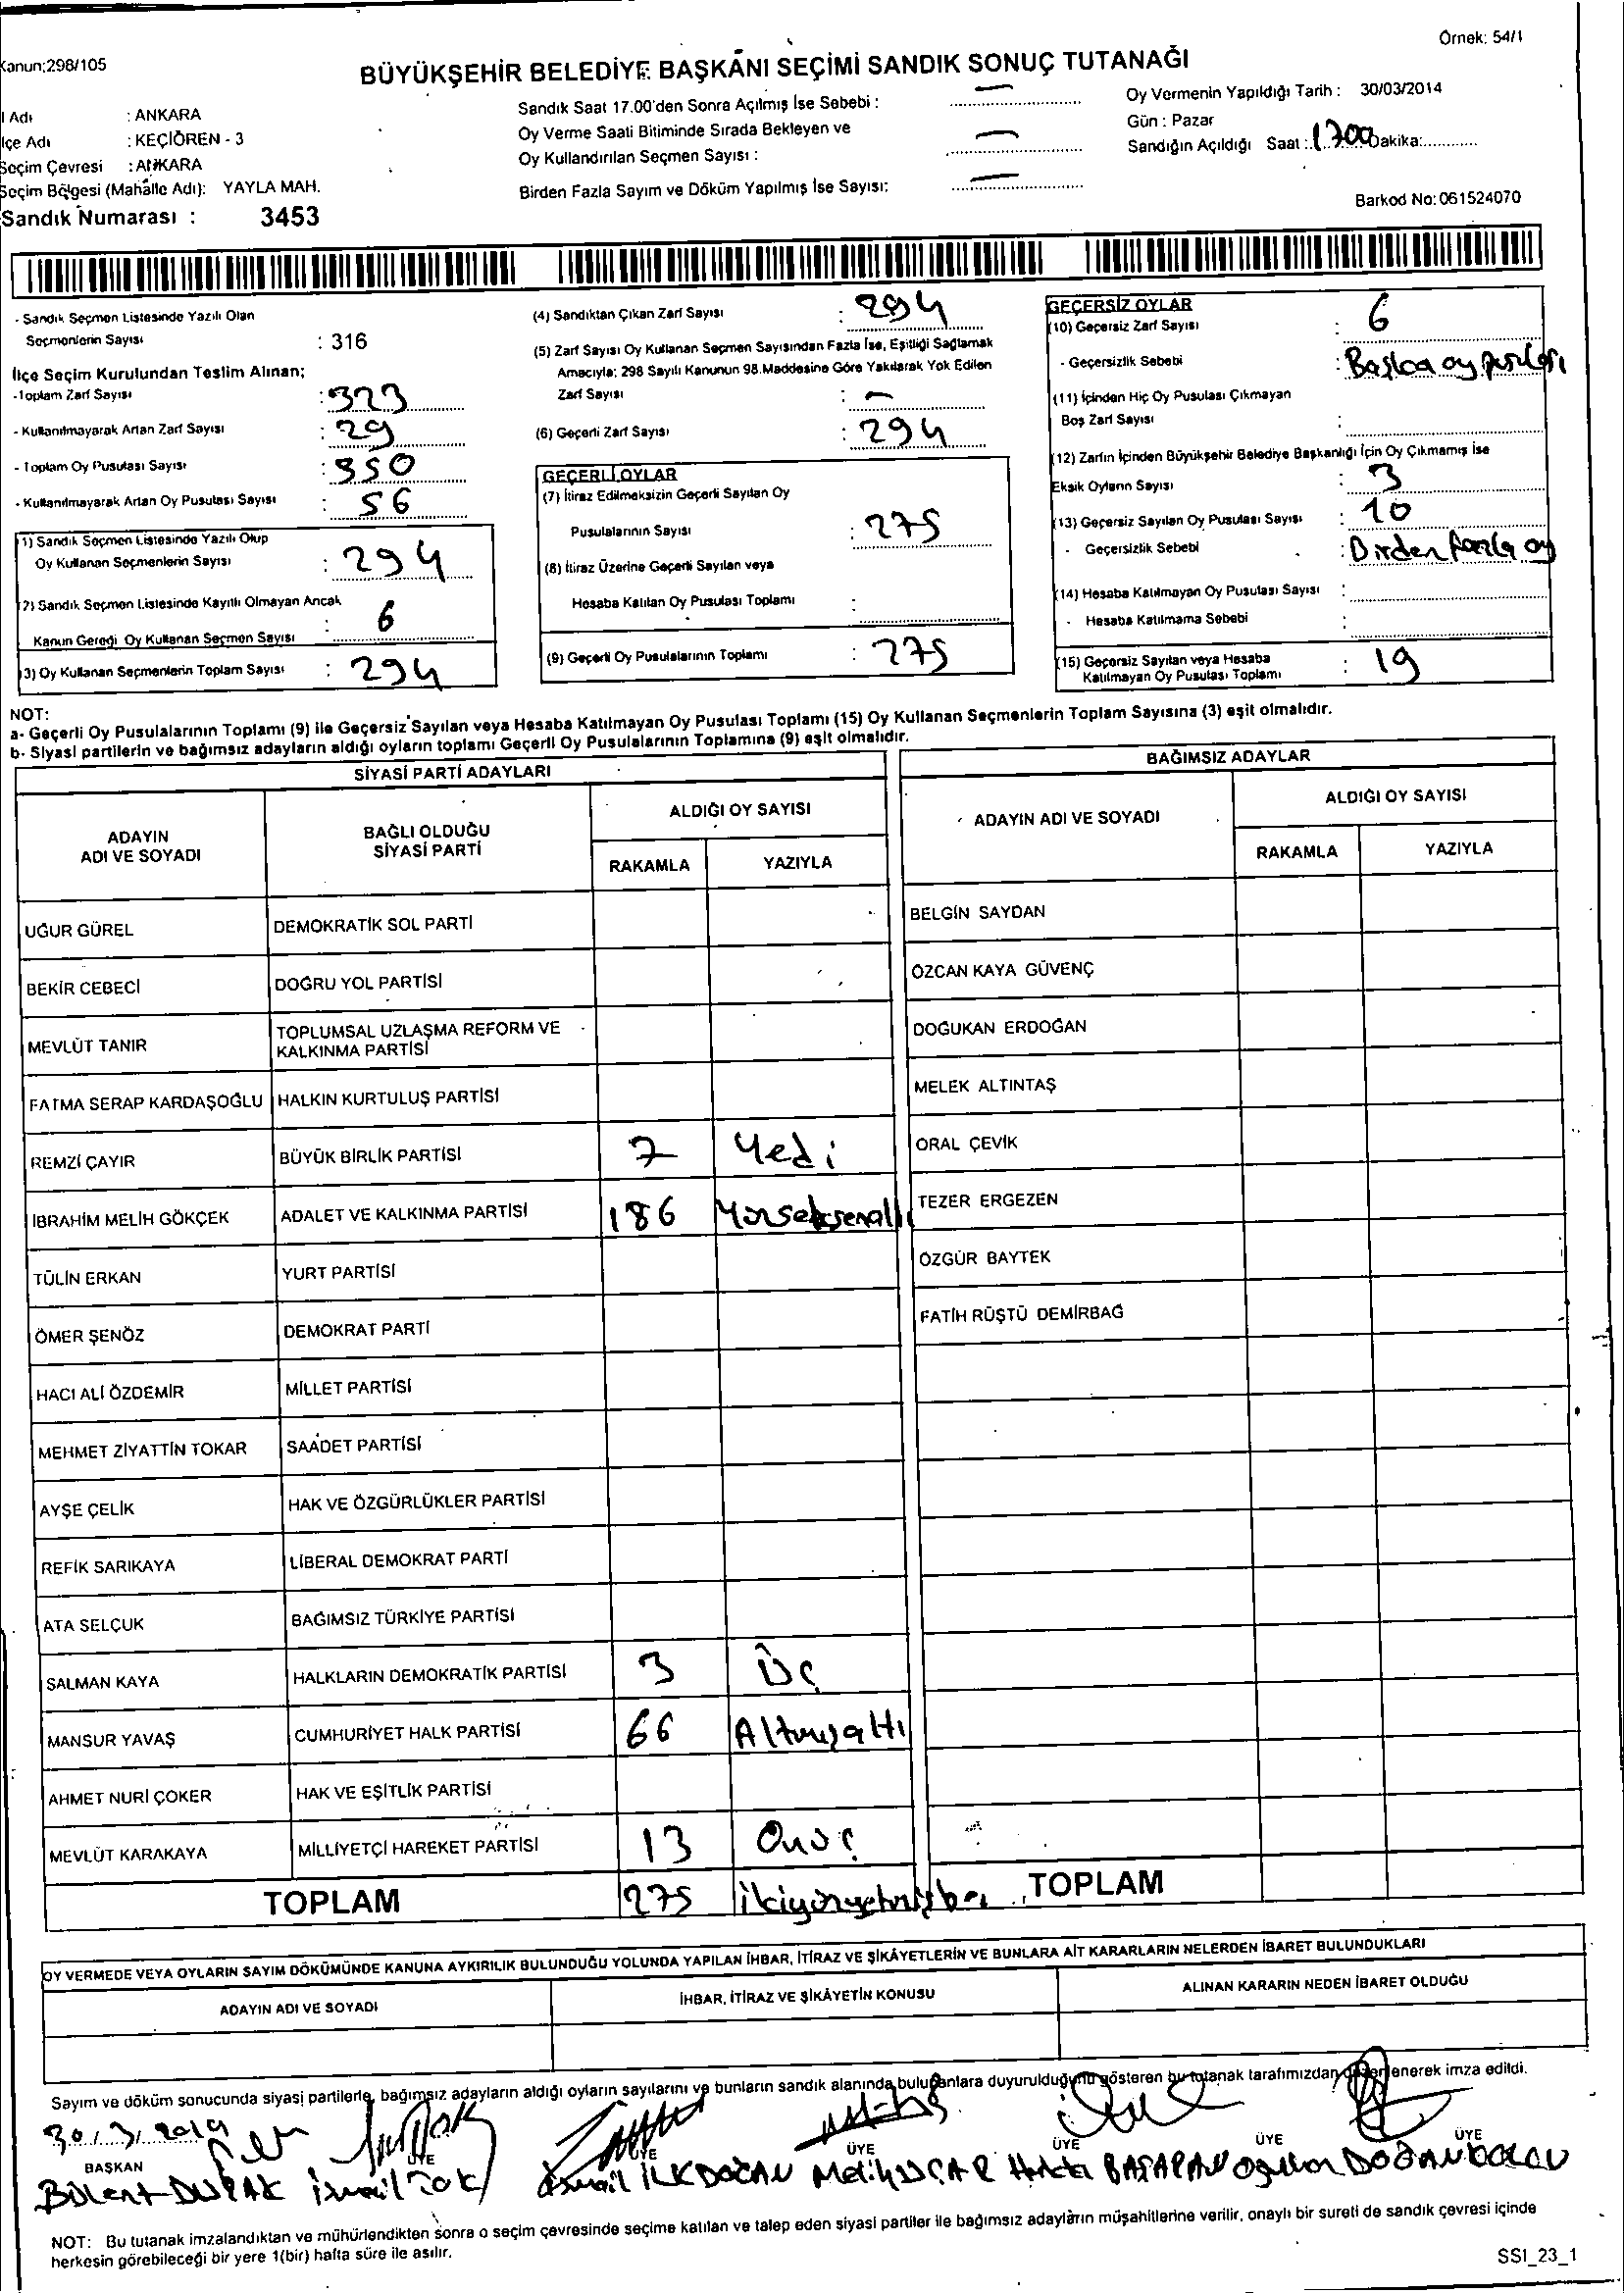 Örnek: 54/1
Kanun:298/105
BÜYÜKŞEHİR BELEDİYE BAŞKANI SEÇİMİ SANDIK SONUÇ TUTANAĞI
l Adı : ANKARA
lçe Adı : KEÇİÖREN - 3
Seçim Çevresi : ANKARA
Seçim Bölgesi (Mahalle Adı): YAYLA MAH.
Sandık Numarası : 3453
Sandık Saat 17.00'den Sonra Açılmış İse Sebebi : —
Oy Verme Saati Bitiminde Sırada Bekleyen ve
Oy Kullandırılan Seçmen Sayısı : —
Birden Fazla Sayım ve Döküm Yapılmış İse Sayısı: —
Oy Vermenin Yapıldığı Tarih : 30/03/2014
Gün : Pazar
Sandığın Açıldığı Saat : 1700 Dakika:
Barkod No: 061524070
- Sandık Seçmen Listesinde Yazılı Olan
Seçmenlerin Sayısı : 316
İlçe Seçim Kurulundan Teslim Alınan;
-Toplam Zarf Sayısı : 323
- Kullanılmayarak Artan Zarf Sayısı : 29
- Toplam Oy Pusulası Sayısı : 350
- Kullanılmayarak Artan Oy Pusulası Sayısı : 56
1) Sandık Seçmen Listesinde Yazılı Olup
Oy Kullanan Seçmenlerin Sayısı : 294
2) Sandık Seçmen Listesinde Kayıtlı Olmayan Ancak
Kanun Gereği Oy Kullanan Seçmen Sayısı : 6
3) Oy Kullanan Seçmenlerin Toplam Sayısı : 294
(4) Sandıktan Çıkan Zarf Sayısı : 294
(5) Zarf Sayısı Oy Kullanan Seçmen Sayısından Fazla İse, Eşitliği Sağlamak
Amacıyla; 298 Sayılı Kanunun 98.Maddesine Göre Yakılarak Yok Edilen
Zarf Sayısı : —
(6) Geçerli Zarf Sayısı : 294
GEÇERLİ OYLAR
(7) İtiraz Edilmeksizin Geçerli Sayılan Oy
Pusulalarının Sayısı : 275
(8) İtiraz Üzerine Geçerli Sayılan veya
Hesaba Katılan Oy Pusulası Toplamı :
(9) Geçerli Oy Pusulalarının Toplamı : 275
GEÇERSİZ OYLAR
(10) Geçersiz Zarf Sayısı : 6
- Geçersizlik Sebebi : Başka oy pusulası
(11) İçinden Hiç Oy Pusulası Çıkmayan
Boş Zarf Sayısı :
(12) Zarfın İçinden Büyükşehir Belediye Başkanlığı İçin Oy Çıkmamış İse
Eksik Oyların Sayısı : 3
(13) Geçersiz Sayılan Oy Pusulası Sayısı : 10
- Geçersizlik Sebebi : Birden fazla oy
(14) Hesaba Katılmayan Oy Pusulası Sayısı :
- Hesaba Katılmama Sebebi :
(15) Geçersiz Sayılan veya Hesaba
Katılmayan Oy Pusulası Toplamı : 19
NOT:
a- Geçerli Oy Pusulalarının Toplamı (9) ile Geçersiz Sayılan veya Hesaba Katılmayan Oy Pusulası Toplamı (15) Oy Kullanan Seçmenlerin Toplam Sayısına (3) eşit olmalıdır.
b- Siyasi partilerin ve bağımsız adayların aldığı oyların toplamı Geçerli Oy Pusulalarının Toplamına (9) eşit olmalıdır.
SİYASİ PARTİ ADAYLARI
ADAYIN ADI VE SOYADI
BAĞLI OLDUĞU SİYASİ PARTİ
ALDIĞI OY SAYISI
RAKAMLA YAZIYLA
UĞUR GÜREL DEMOKRATİK SOL PARTİ
BEKİR CEBECİ DOĞRU YOL PARTİSİ
MEVLÜT TANIR TOPLUMSAL UZLAŞMA REFORM VE
KALKINMA PARTİSİ
FATMA SERAP KARDAŞOĞLU HALKIN KURTULUŞ PARTİSİ
REMZİ ÇAYIR BÜYÜK BİRLİK PARTİSİ 7 Yedi
İBRAHİM MELİH GÖKÇEK ADALET VE KALKINMA PARTİSİ 186 Yüzseksenaltı
TÜLİN ERKAN YURT PARTİSİ
ÖMER ŞENÖZ DEMOKRAT PARTİ
HACI ALİ ÖZDEMİR MİLLET PARTİSİ
MEHMET ZİYATTİN TOKAR SAADET PARTİSİ
AYŞE ÇELİK HAK VE ÖZGÜRLÜKLER PARTİSİ
REFİK SARIKAYA LİBERAL DEMOKRAT PARTİ
ATA SELÇUK BAĞIMSIZ TÜRKİYE PARTİSİ
SALMAN KAYA HALKLARIN DEMOKRATİK PARTİSİ 3 Üç
MANSUR YAVAŞ CUMHURİYET HALK PARTİSİ 66 Altmışaltı
AHMET NURİ ÇOKER HAK VE EŞİTLİK PARTİSİ
MEVLÜT KARAKAYA MİLLİYETÇİ HAREKET PARTİSİ 13 Onüç
TOPLAM 275 ikiyüzyetmişbeş
BAĞIMSIZ ADAYLAR
ADAYIN ADI VE SOYADI
ALDIĞI OY SAYISI
RAKAMLA YAZIYLA
BELGİN SAYDAN
ÖZCAN KAYA GÜVENÇ
DOĞUKAN ERDOĞAN
MELEK ALTINTAŞ
ORAL ÇEVİK
TEZER ERGEZEN
ÖZGÜR BAYTEK
FATİH RÜŞTÜ DEMİRBAĞ
TOPLAM
OY VERMEDE VEYA OYLARIN SAYIM DÖKÜMÜNDE KANUNA AYKIRILIK BULUNDUĞU YOLUNDA YAPILAN İHBAR, İTİRAZ VE ŞİKÂYETLERİN VE BUNLARA AİT KARARLARIN NELERDEN İBARET BULUNDUKLARI
ADAYIN ADI VE SOYADI İHBAR, İTİRAZ VE ŞİKÂYETİN KONUSU ALINAN KARARIN NEDEN İBARET OLDUĞU
Sayım ve döküm sonucunda siyasi partilerle, bağımsız adayların aldığı oyların sayılarını ve bunların sandık alanında bulunanlara duyurulduğunu gösteren bu tutanak tarafımızdan düzenlenerek imza edildi.
30/3/2014
BAŞKAN ÜYE ÜYE ÜYE ÜYE ÜYE ÜYE
Bülent İsmail TOK İsmail İLKDOĞAN Melih UÇAR BAŞARAN
NOT: Bu tutanak imzalandıktan ve mühürlendikten sonra o seçim çevresinde seçime katılan ve talep eden siyasi partiler ile bağımsız adayların müşahitlerine verilir, onaylı bir sureti de sandık çevresi içinde
herkesin görebileceği bir yere 1(bir) hafta süre ile asılır.
SSI_23_1